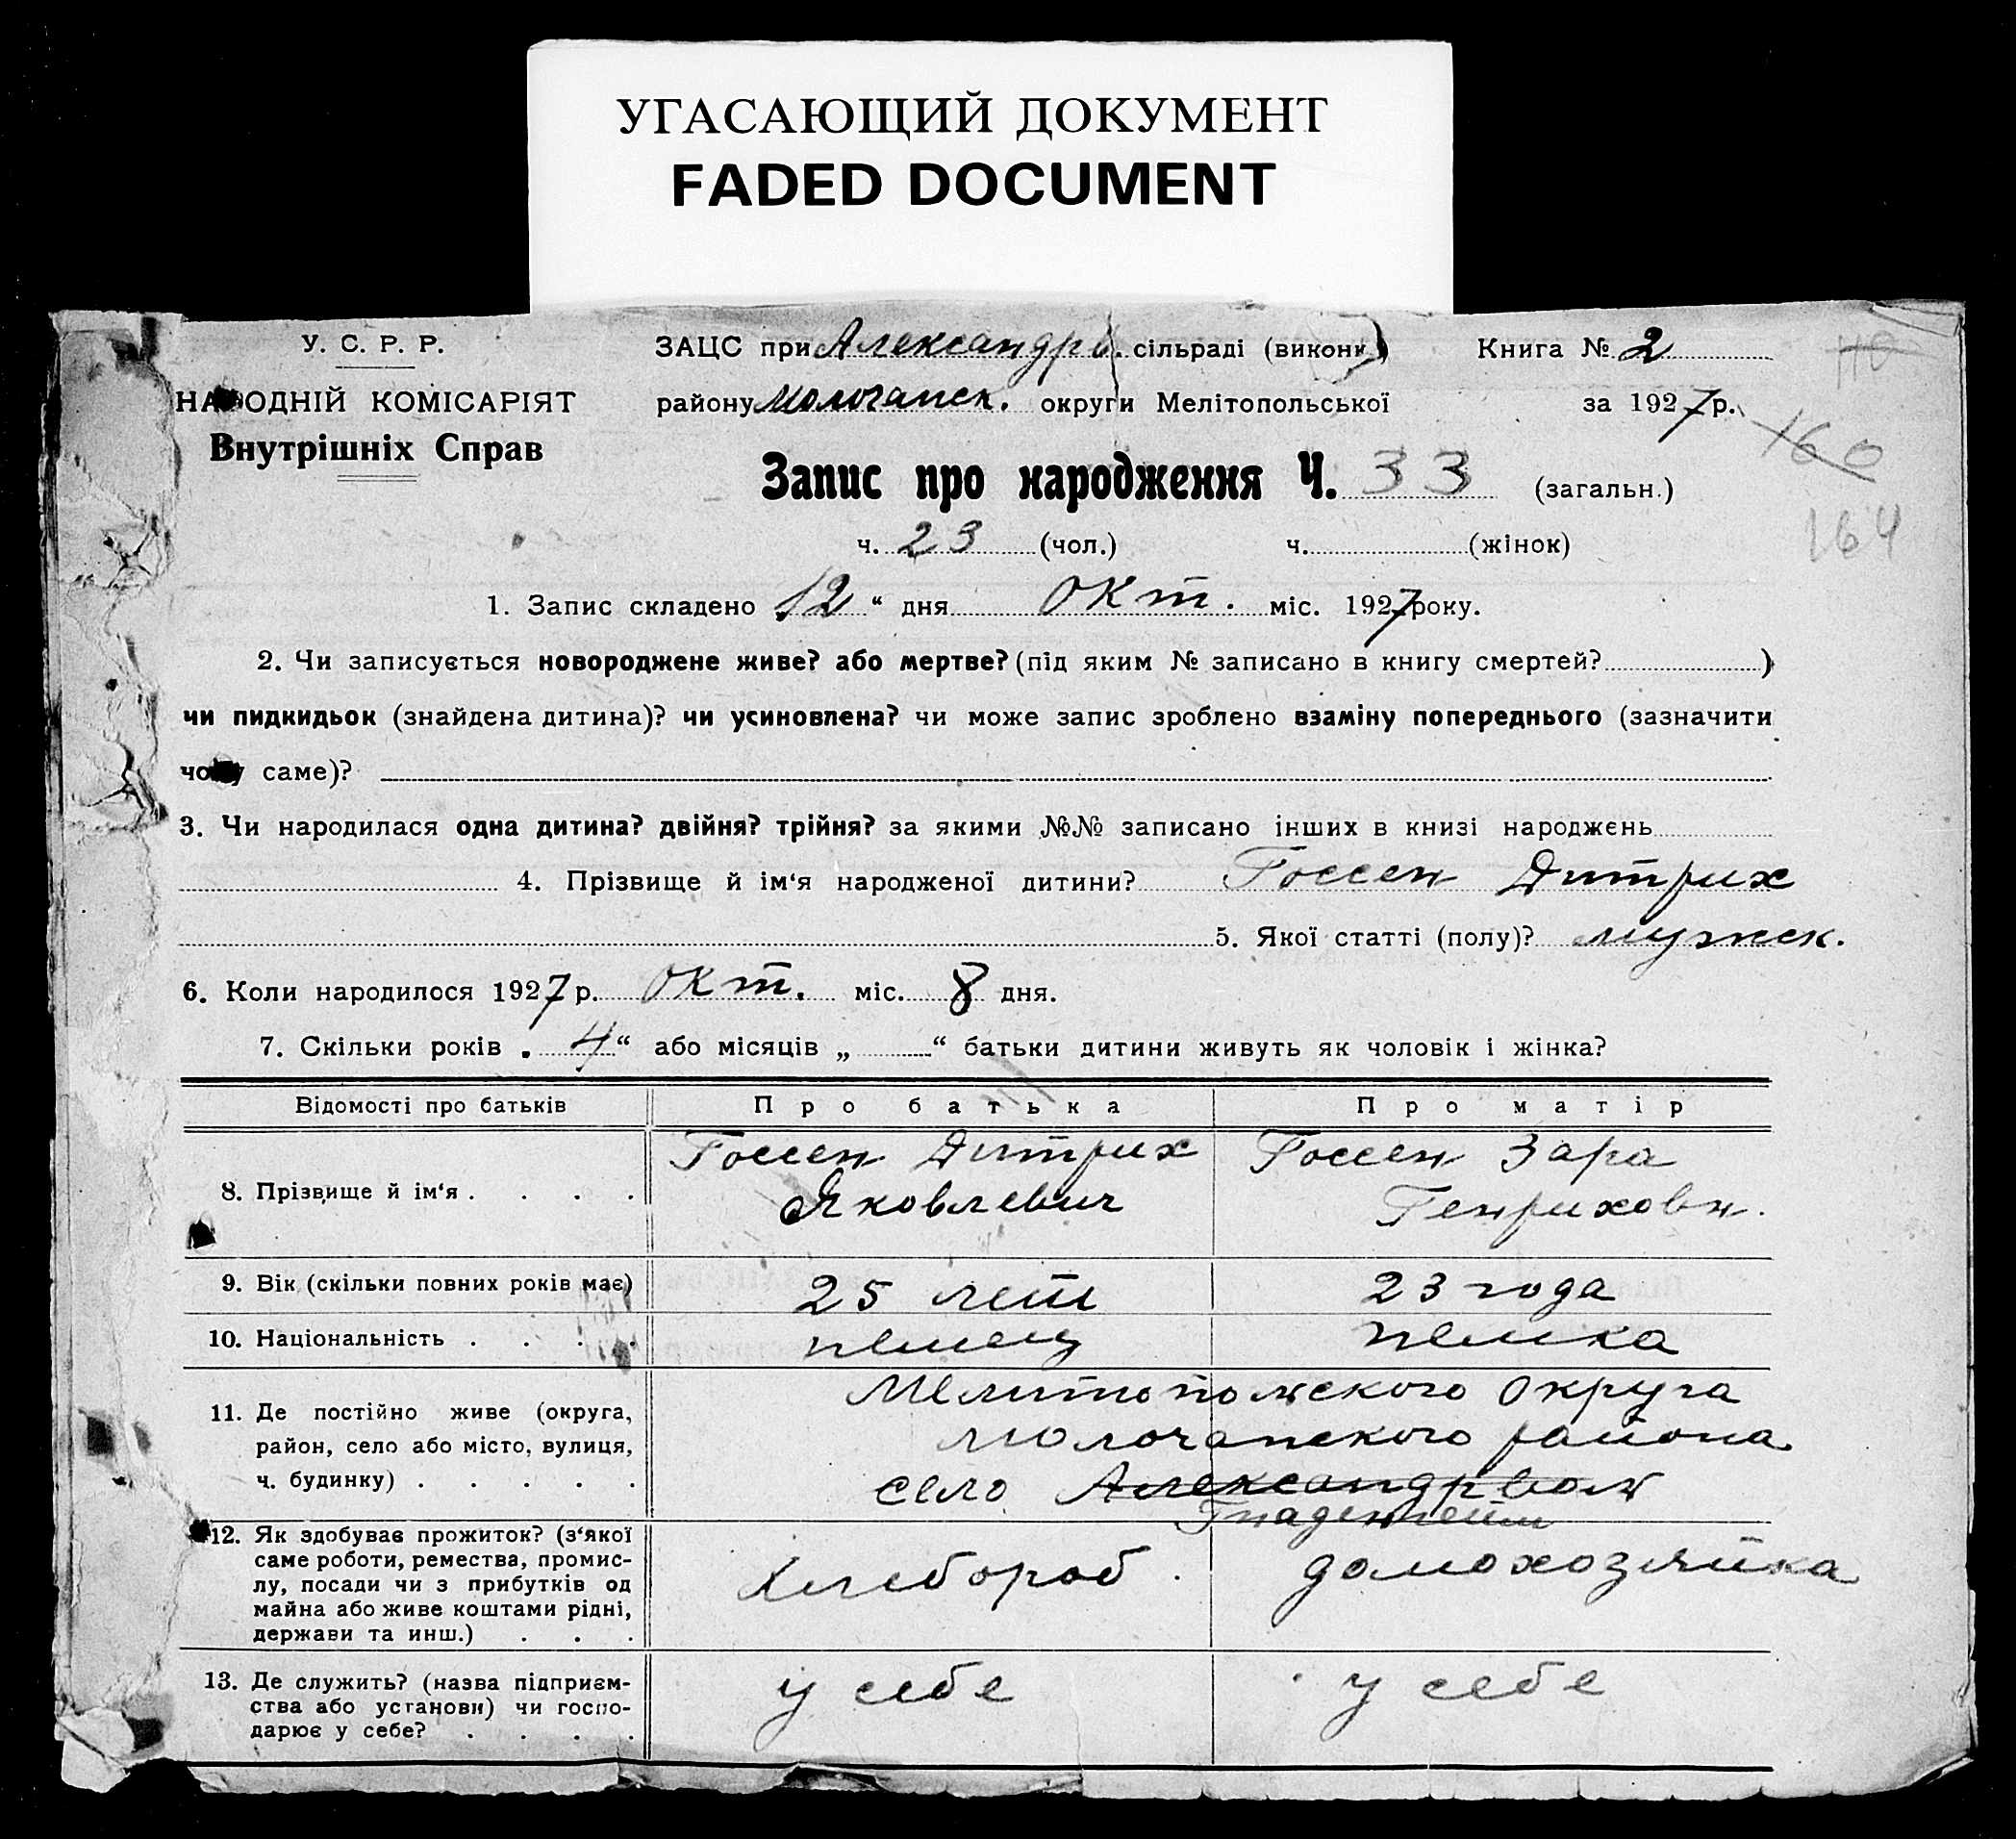 УГАСАЮЩИЙ ДОКУМЕНТ
FADED DOCUMENT
У. С. Р. Р.
НАРОДНІЙ КОМІСАРІЯТ
Внутрішніх Справ
ЗАЦС при Александрв. сільраді (виконк)
Книга № 2
110
району Молочанск. округи Мелітопольської
за 1927 р.
160
Запис про народження Ч. 33 (загальн.)
164
ч. 23 (чол.) ч. (жінок)
1. Запис складено 12 “ дня окт. міс. 1927 року.
2. Чи записується новороджене живе? або мертве? (під яким № записано в книгу смертей? )
чи пидкидьок (знайдена дитина)? чи усиновлена? чи може запис зроблено взаміну попереднього (зазначити
чому саме)?
3. Чи народилася одна дитина? двійня? трійня? за якими №№ записано інших в книзі народжень
4. Прізвище й ім‘я народженої дитини? Госсен Дитрих
5. Якої статті (полу)? мужск.
6. Коли народилося 1927 р. окт. міс. 8 дня.
7. Скільки років „ 4 “ або місяців „ “ батьки дитини живуть як чоловік і жінка?
Відомості про батьків
Про батька
Про матір
8. Прізвище й ім‘я . . . .
Госсен Дитрих
Яковлевич
Госсен Зара
Генриховн.
9. Вік (скільки повних років має)
25 лет
23 года
10. Національність . . . .
немец
немка
11. Де постійно живе (округа,
район, село або місто, вулиця,
ч. будинку) . . . . .
Мелитопольского округа
Молочанского района
село Александрвол
Гнаденгейм
12. Як здобуває прожиток? (з‘якої
саме роботи, ремества, промис-
лу, посади чи з прибутків од
майна або живе коштами рідні,
держави та инш.) . . .
Хлебороб.
домохозяйка
13. Де служить? (назва підприєм-
ства або установи) чи госпо-
дарює у себе? . . . .
у себе
у себе